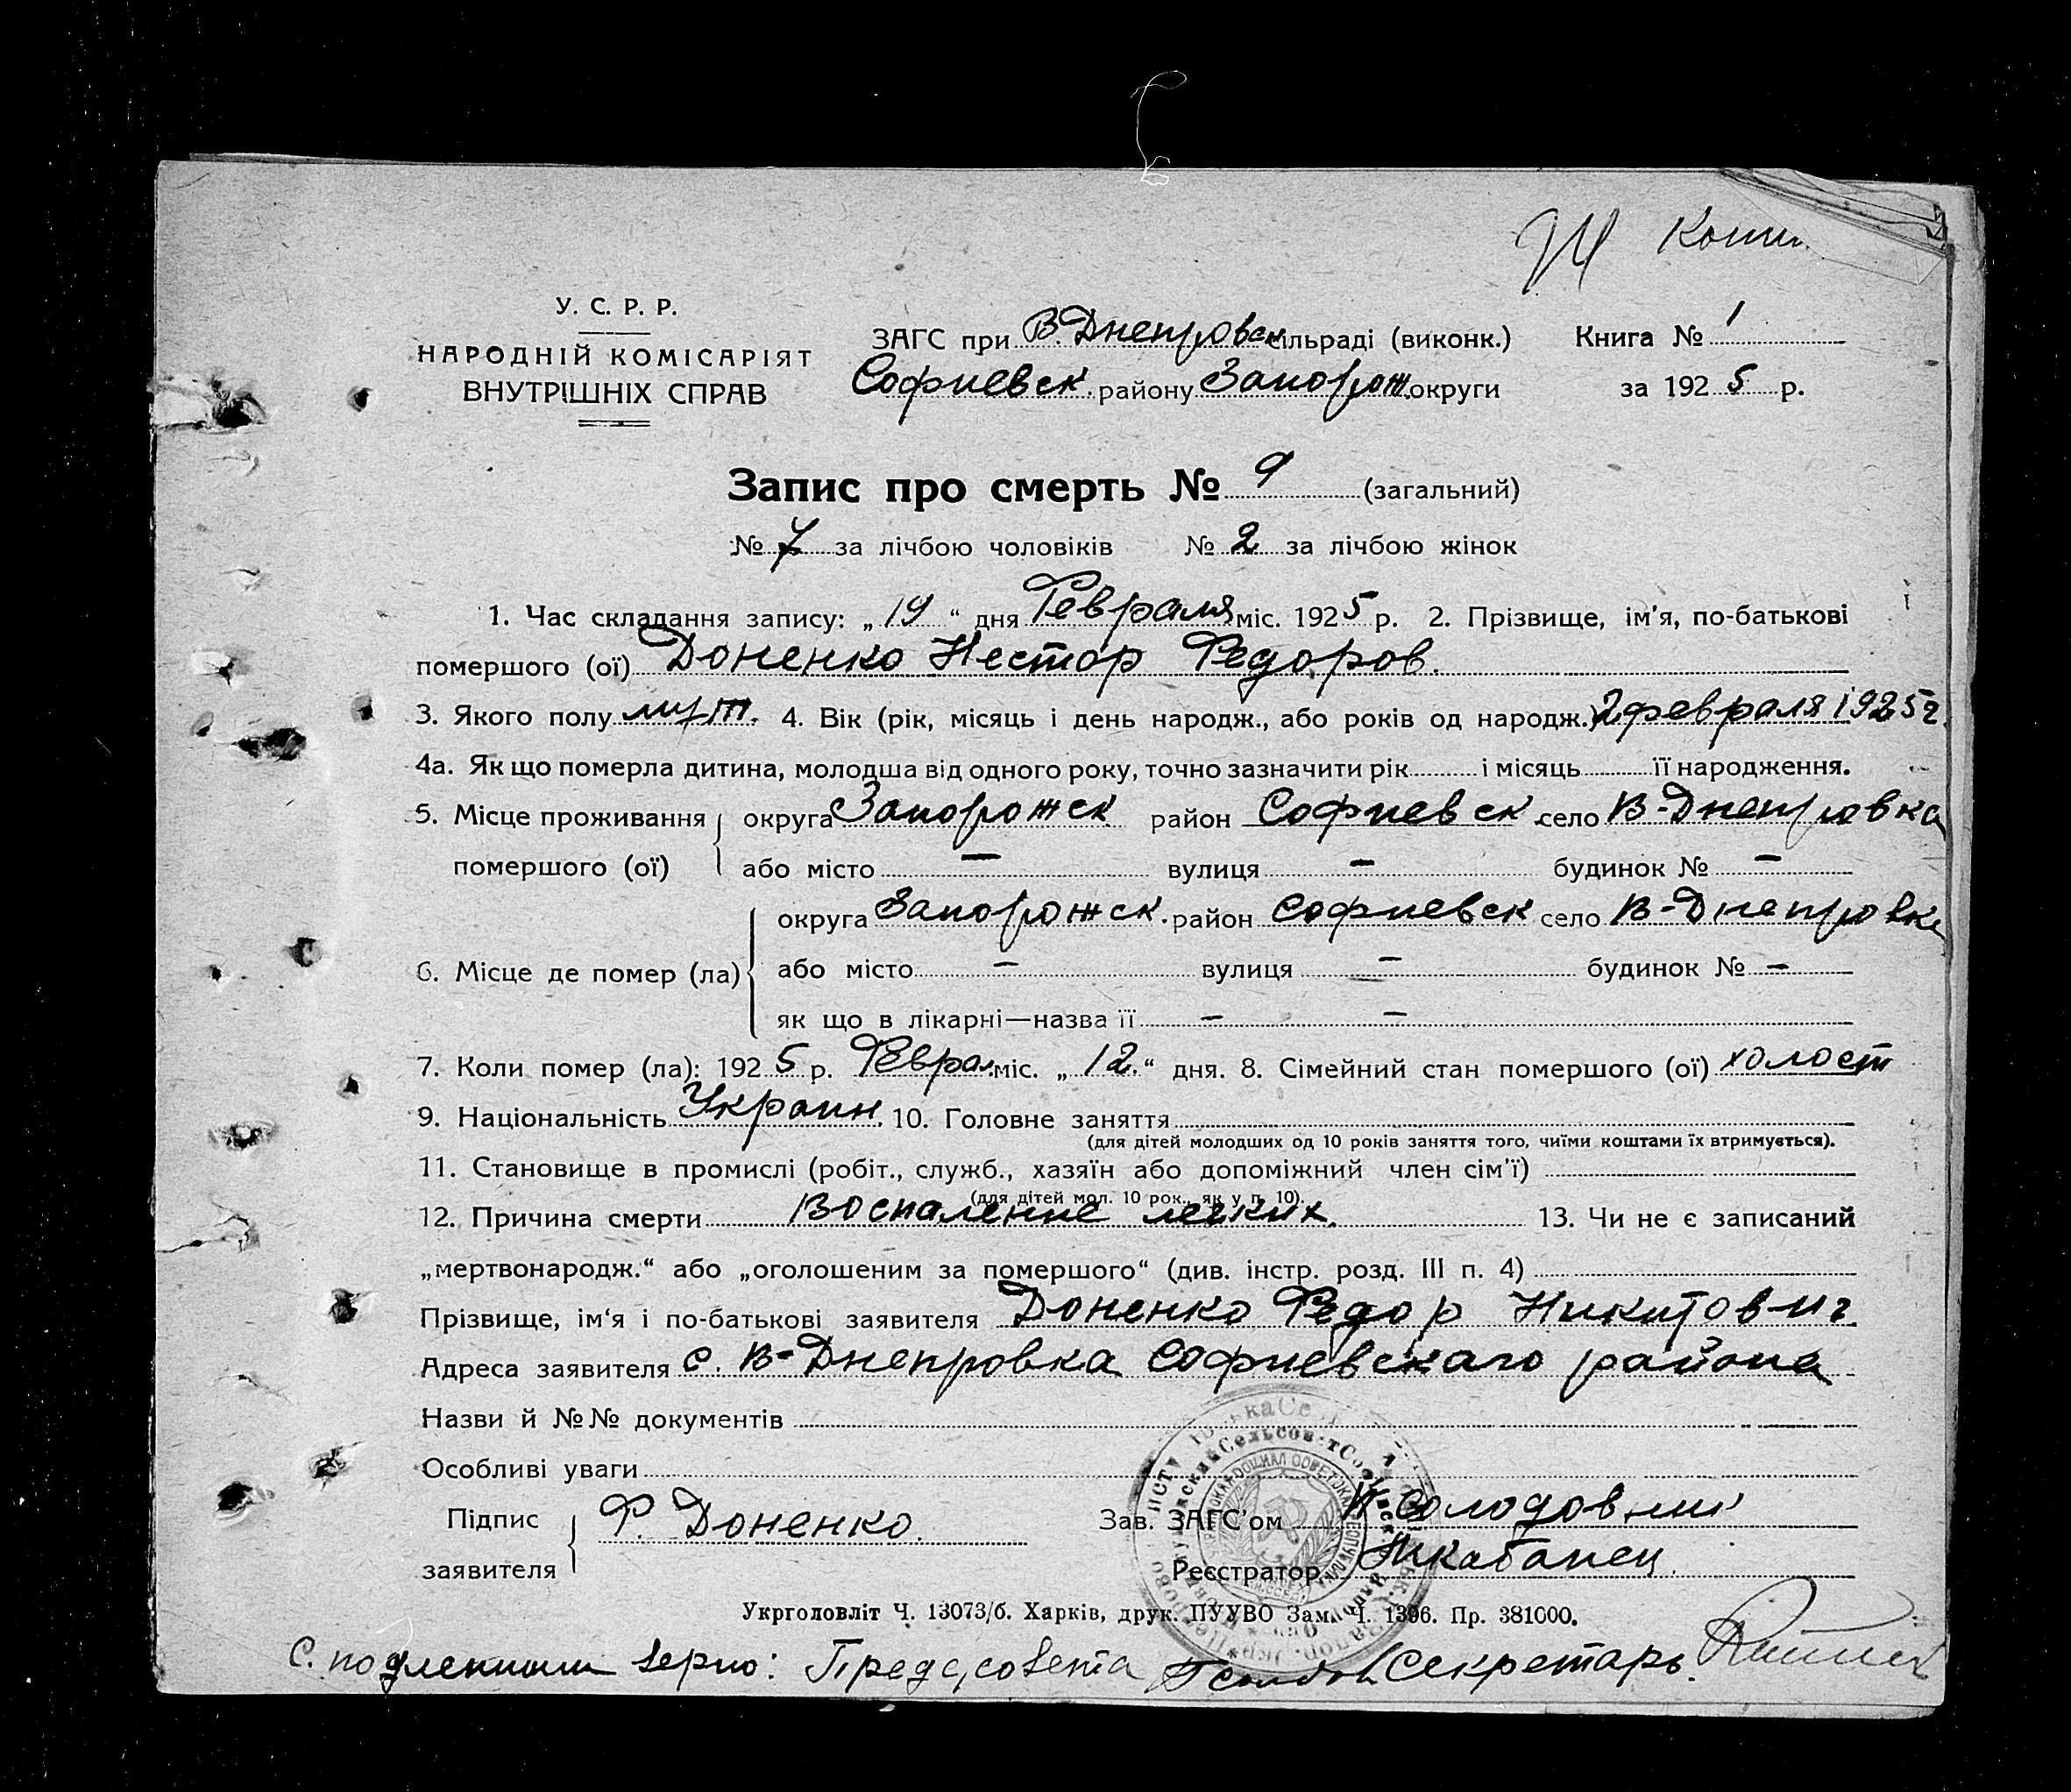 Ж Копи
У. С. Р. Р.
НАРОДНІЙ КОМІСАРІЯТ
ВНУТРІШНІХ СПРАВ
ЗАГС при В.Днепровск сільраді (виконк.) Книга № 1
Софиевск. району Запорож. округи за 1925 р.
Запис про смерть № 9 (загальний)
№ 7 за лічбою чоловіків № 2 за лічбою жінок
1. Час складання запису: „19“ дня Февраля міс. 1925 р. 2. Прізвище, ім'я, по-батькові
помершого (ої) Доненко Нестор Федоров.
3. Якого полу муж. 4. Вік (рік, місяць і день народж., або років од народж.) 2 февраля 1925 г.
4а. Як що померла дитина, молодша від одного року, точно зазначити рік і місяць її народження.
5. Місце проживання округа Запорожск район Софиевск село В-Днепровка
помершого (ої) або місто — вулиця — будинок № —
округа Запорожск. район Софиевск село В-Днепровке
6. Місце де помер (ла) або місто — вулиця — будинок № —
як що в лікарні—назва її — —
7. Коли помер (ла): 1925 р. Феврал. міс. „12.“ дня. 8. Сімейний стан помершого (ої) холост
9. Національність Украин. 10. Головне заняття
(для дітей молодших од 10 років заняття того, чиїми коштами їх втримується).
11. Становище в промислі (робіт., служб., хазяїн або допоміжний член сім'ї)
(для дітей мол. 10 рок., як у п. 10).
12. Причина смерти Воспаление легких. 13. Чи не є записаний
„мертвонародж.“ або „оголошеним за помершого“ (див. інстр. розд. III п. 4)
Прізвище, ім'я і по-батькові заявителя Доненко Федор Никитович
Адреса заявителя с. В-Днепровка Софиевскаго района
Назви й №№ документів
Особливі уваги
Підпис заявителя Ф. Доненко.
Зав. ЗАГС'ом Солодовник
Реєстратор Шкабанец.
Укрголовліт Ч. 13073/б. Харків, друк. ПУУВО Зам. Ч. 1396. Пр. 381000.
С. подленным верно: Предс,совета Секретарь.